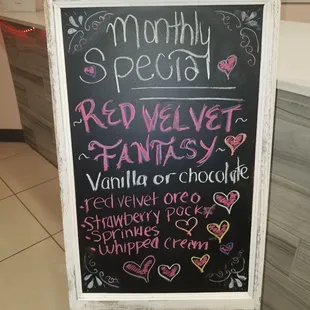 Monthly
Special
RED VELVET
~ FANTASY ~
Vanilla or chocolate
• red velvet oreo
• strawberry pocky
• sprinkles
• whipped cream